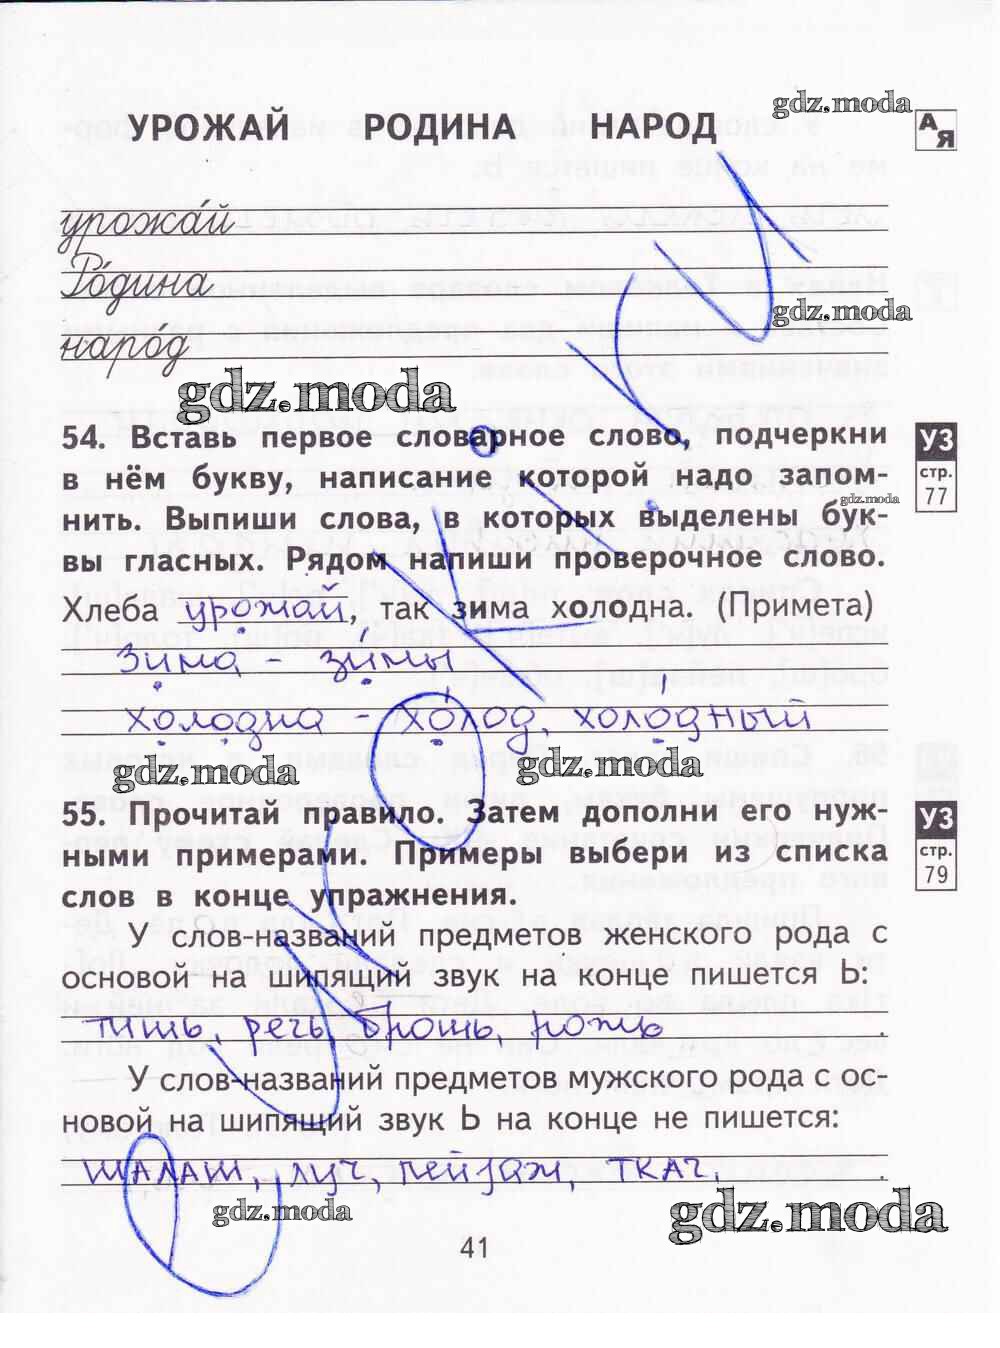 gdz.moda
УРОЖАЙ РОДИНА НАРОД
А
Я
урожа́й
Ро́дина
gdz.moda
наро́д
gdz.moda
54. Вставь первое словарное слово, подчеркни
в нём букву, написание которой надо запом-
нить. Выпиши слова, в которых выделены бук-
вы гласных. Рядом напиши проверочное слово.
УЗ
стр.
77
gdz.moda
Хлеба урожай, так зима холодна. (Примета)
зима - зимы
холодна - хо́лод, холо́дный
gdz.moda gdz.moda
55. Прочитай правило. Затем дополни его нуж-
ными примерами. Примеры выбери из списка
слов в конце упражнения.
УЗ
стр.
79
У слов-названий предметов женского рода с
основой на шипящий звук на конце пишется Ь:
тишь, речь, брошь, рожь.
У слов-названий предметов мужского рода с ос-
новой на шипящий звук Ь на конце не пишется:
шалаш, луч, пейзаж, ткач.
gdz.moda gdz.moda
41